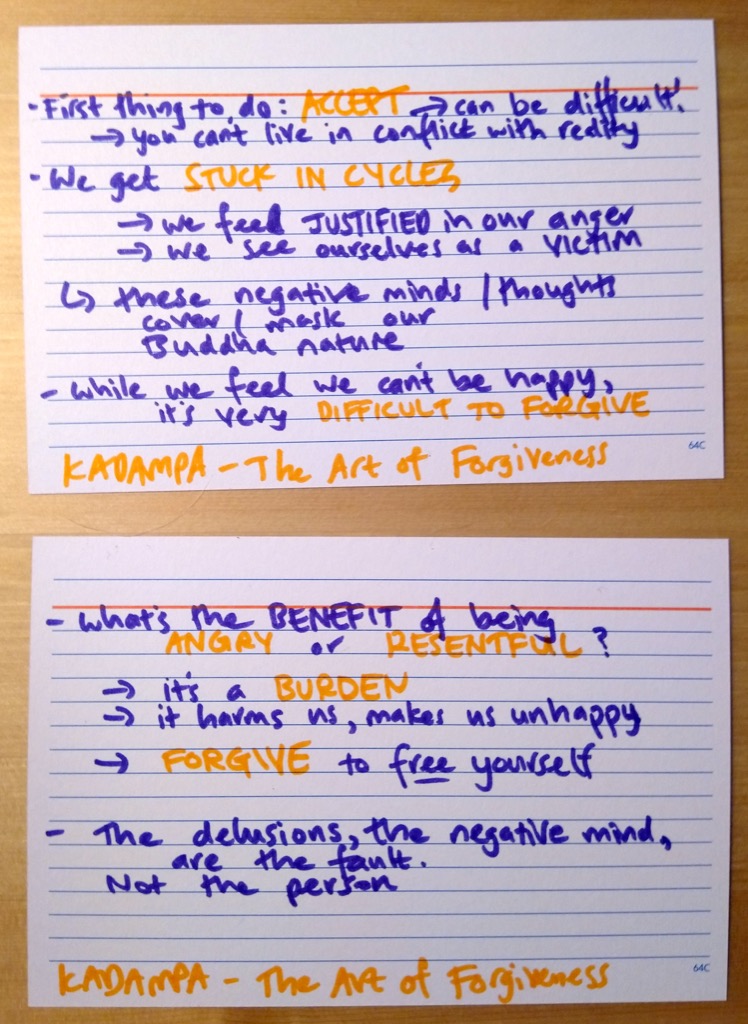 - First thing to do: ACCEPT → can be difficult.
→ you can't live in conflict with reality
- We get STUCK IN CYCLES
→ we feel JUSTIFIED in our anger
→ we see ourselves as a victim
↳ these negative minds / thoughts
cover / mask our
Buddha nature
- while we feel we can't be happy,
it's very DIFFICULT TO FORGIVE
64C
KADAMPA - The Art of Forgiveness
- what's the BENEFIT of being
ANGRY or RESENTFUL?
→ it's a BURDEN
→ it harms us, makes us unhappy
→ FORGIVE to free yourself
- The delusions, the negative mind,
are the fault.
Not the person
64C
KADAMPA - The Art of Forgiveness